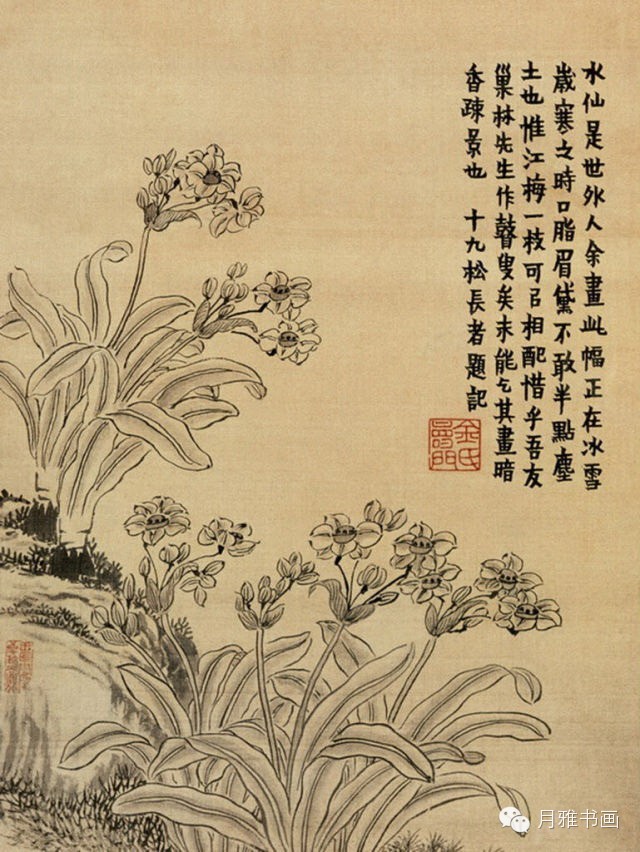 水仙是世外人余畫此幅正在冰雪
歲寒之時口脂眉黛不敢半點塵
土也惟江梅一枝可㠯相配惜乎吾友
巢林先生作瞽叟矣未能乞其畫暗
香疎景也 十九松長者題記
金氏
月雅书画